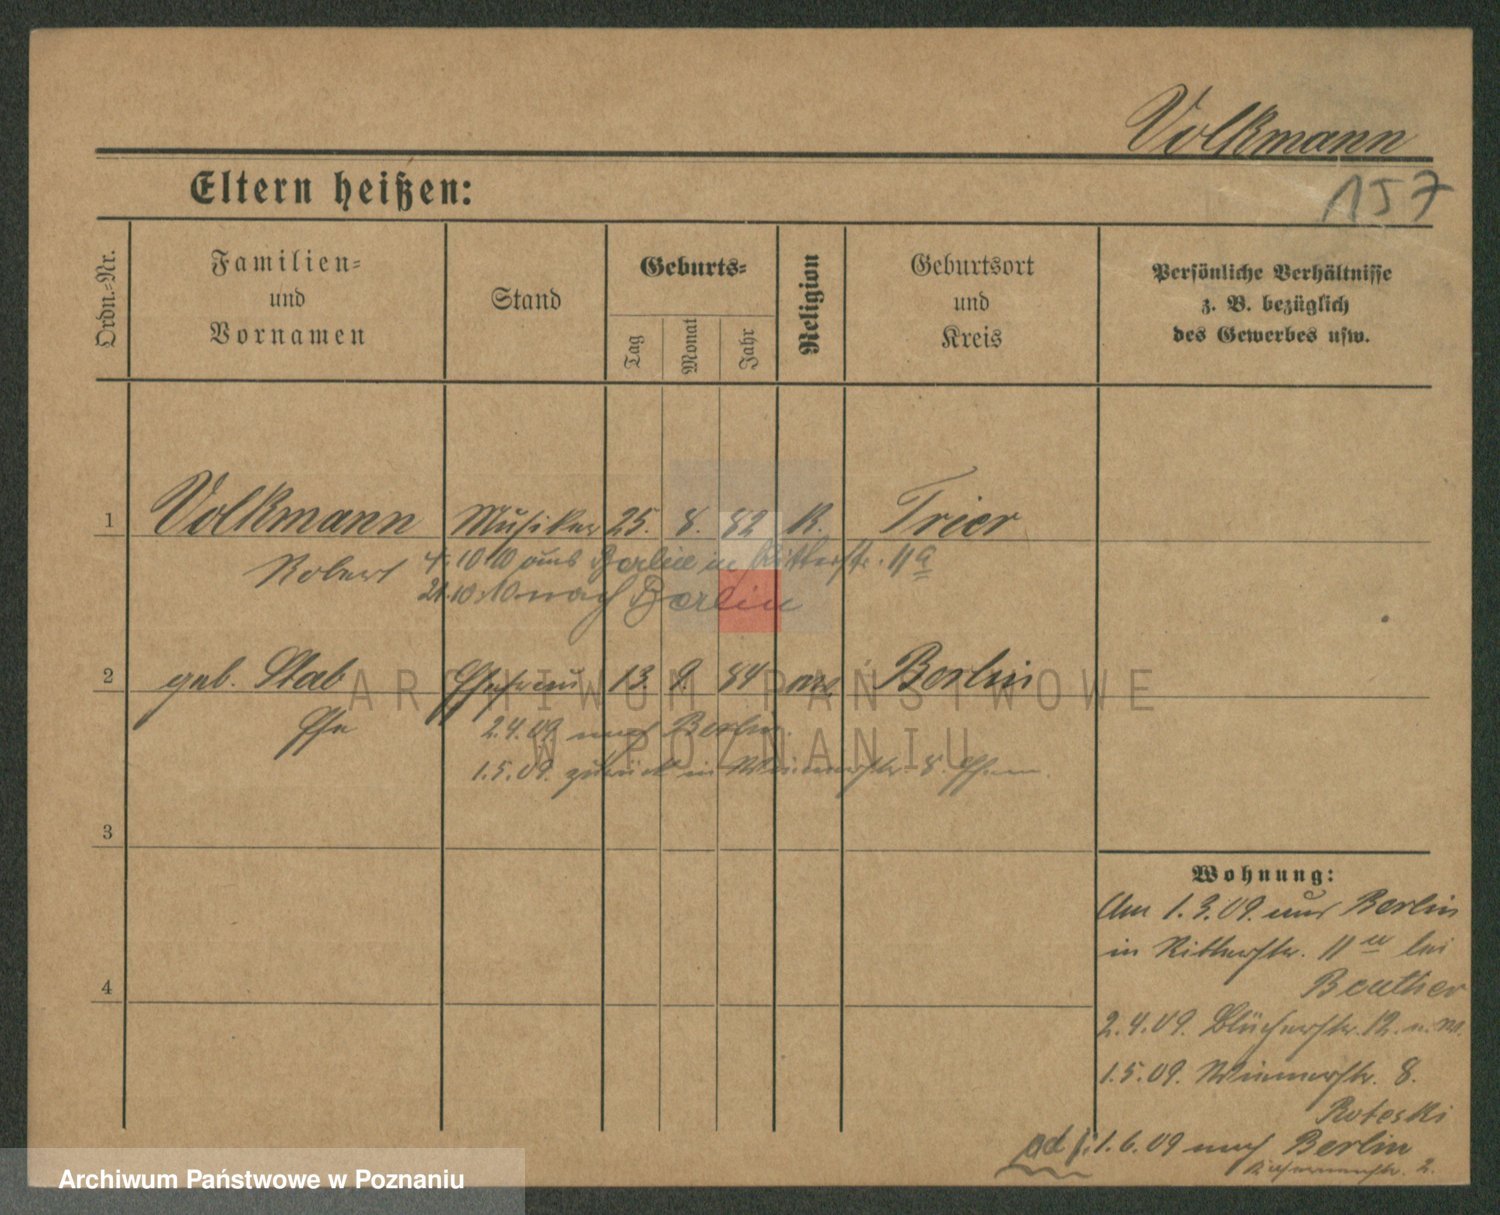 Volkmann
157
Eltern heißen:
Ordn.-Nr.
Familien-
und
Vornamen
Stand
Geburts-
Tag
Monat
Jahr
Religion
Geburtsort
und
Kreis
Persönliche Verhältnisse
z. B. bezüglich
des Gewerbes usw.
1 Volkmann Musiker 25. 8. 82 K. Trier
Robert 4.10.10 aus Berlin in Ritterstr. 11a
21.10.10 nach Berlin
2 geb. Stab Ehefrau 13. 9. 84 Berlin
2.4.09 nach Berlin.
1.5.09. zurück in 8.
ARCHIWUM PAŃSTWOWE
W POZNANIU
3
4
Wohnung:
Am 1.3.09. aus Berlin
in Ritterstr. 11 bei
Beuther
2.4.09. Blücherstr. 12.
1.5.09. 8.
Roteski
1.6.09 nach Berlin
2.
Archiwum Państwowe w Poznaniu